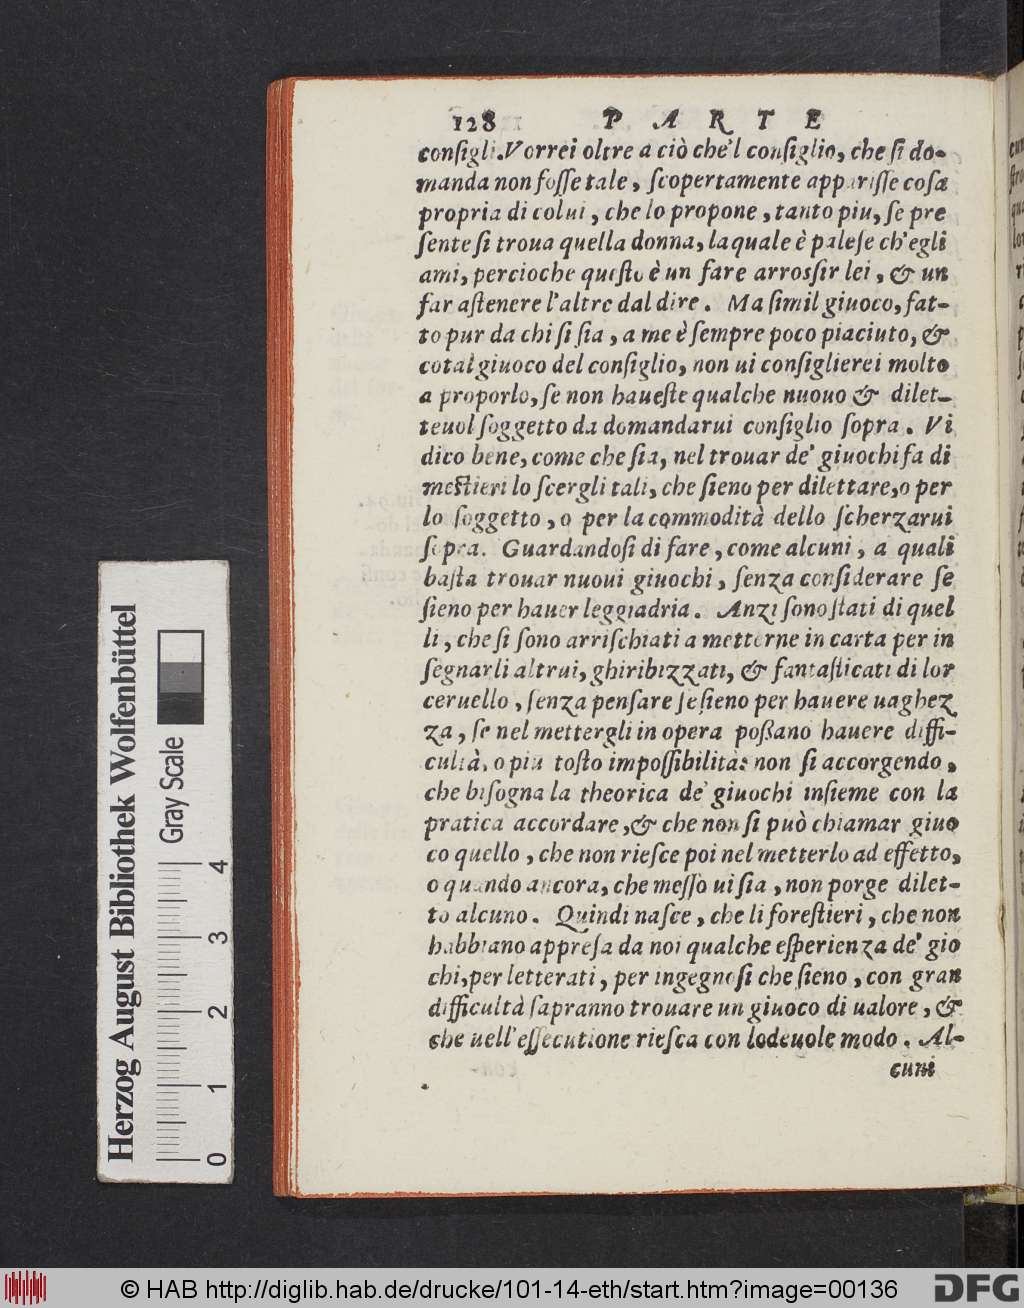 128 PARTE
conſigli. Vorrei oltre a ciò che'l conſiglio, che ſi do-
manda non foſſe tale, ſcopertamente appariſſe coſa
propria di colui, che lo propone, tanto piu, ſe pre
ſente ſi troua quella donna, laquale è paleſe ch'egli
ami, percioche queſto è un fare arroſſir lei, & un
far aſtenere l'altre dal dire. Ma ſimil giuoco, fat-
to pur da chi ſi ſia, a me è ſempre poco piaciuto, &
cotal giuoco del conſiglio, non ui conſiglierei molto
a proporlo, ſe non haueſte qualche nuouo & dilet-
teuol ſoggetto da domandarui conſiglio ſopra. Vi
dico bene, come che ſia, nel trouar de' giuochi fa di
meſtieri lo ſcergli tali, che ſieno per dilettare, o per
lo ſoggetto, o per la commodità dello ſcherzarui
ſopra. Guardandoſi di fare, come alcuni, a quali
baſta trouar nuoui giuochi, ſenza conſiderare ſe
ſieno per hauer leggiadria. Anzi ſono ſtati di quel
li, che ſi ſono arriſchiati a metterne in carta per in
ſegnarli altrui, ghiribizzati, & fantaſticati di lor
ceruello, ſenza penſare ſe ſieno per hauere uaghez
za, ſe nel mettergli in opera poßano hauere diffi-
cultà, o piu toſto impoſſibilità: non ſi accorgendo,
che biſogna la theorica de' giuochi inſieme con la
pratica accordare, & che non ſi può chiamar giuo
co quello, che non rieſce poi nel metterlo ad effetto,
o quando ancora, che meſſo ui ſia, non porge dilet-
to alcuno. Quindi naſce, che li foreſtieri, che non
habbiano appreſa da noi qualche eſperienza de' gio
chi, per letterati, per ingegnoſi che ſieno, con gran
difficultà ſapranno trouare un giuoco di ualore, &
che nell'eſſecutione rieſca con lodeuole modo. Al-
cuni
Herzog August Bibliothek Wolfenbüttel
Gray Scale
0 1 2 3 4
© HAB http://diglib.hab.de/drucke/101-14-eth/start.htm?image=00136
DFG